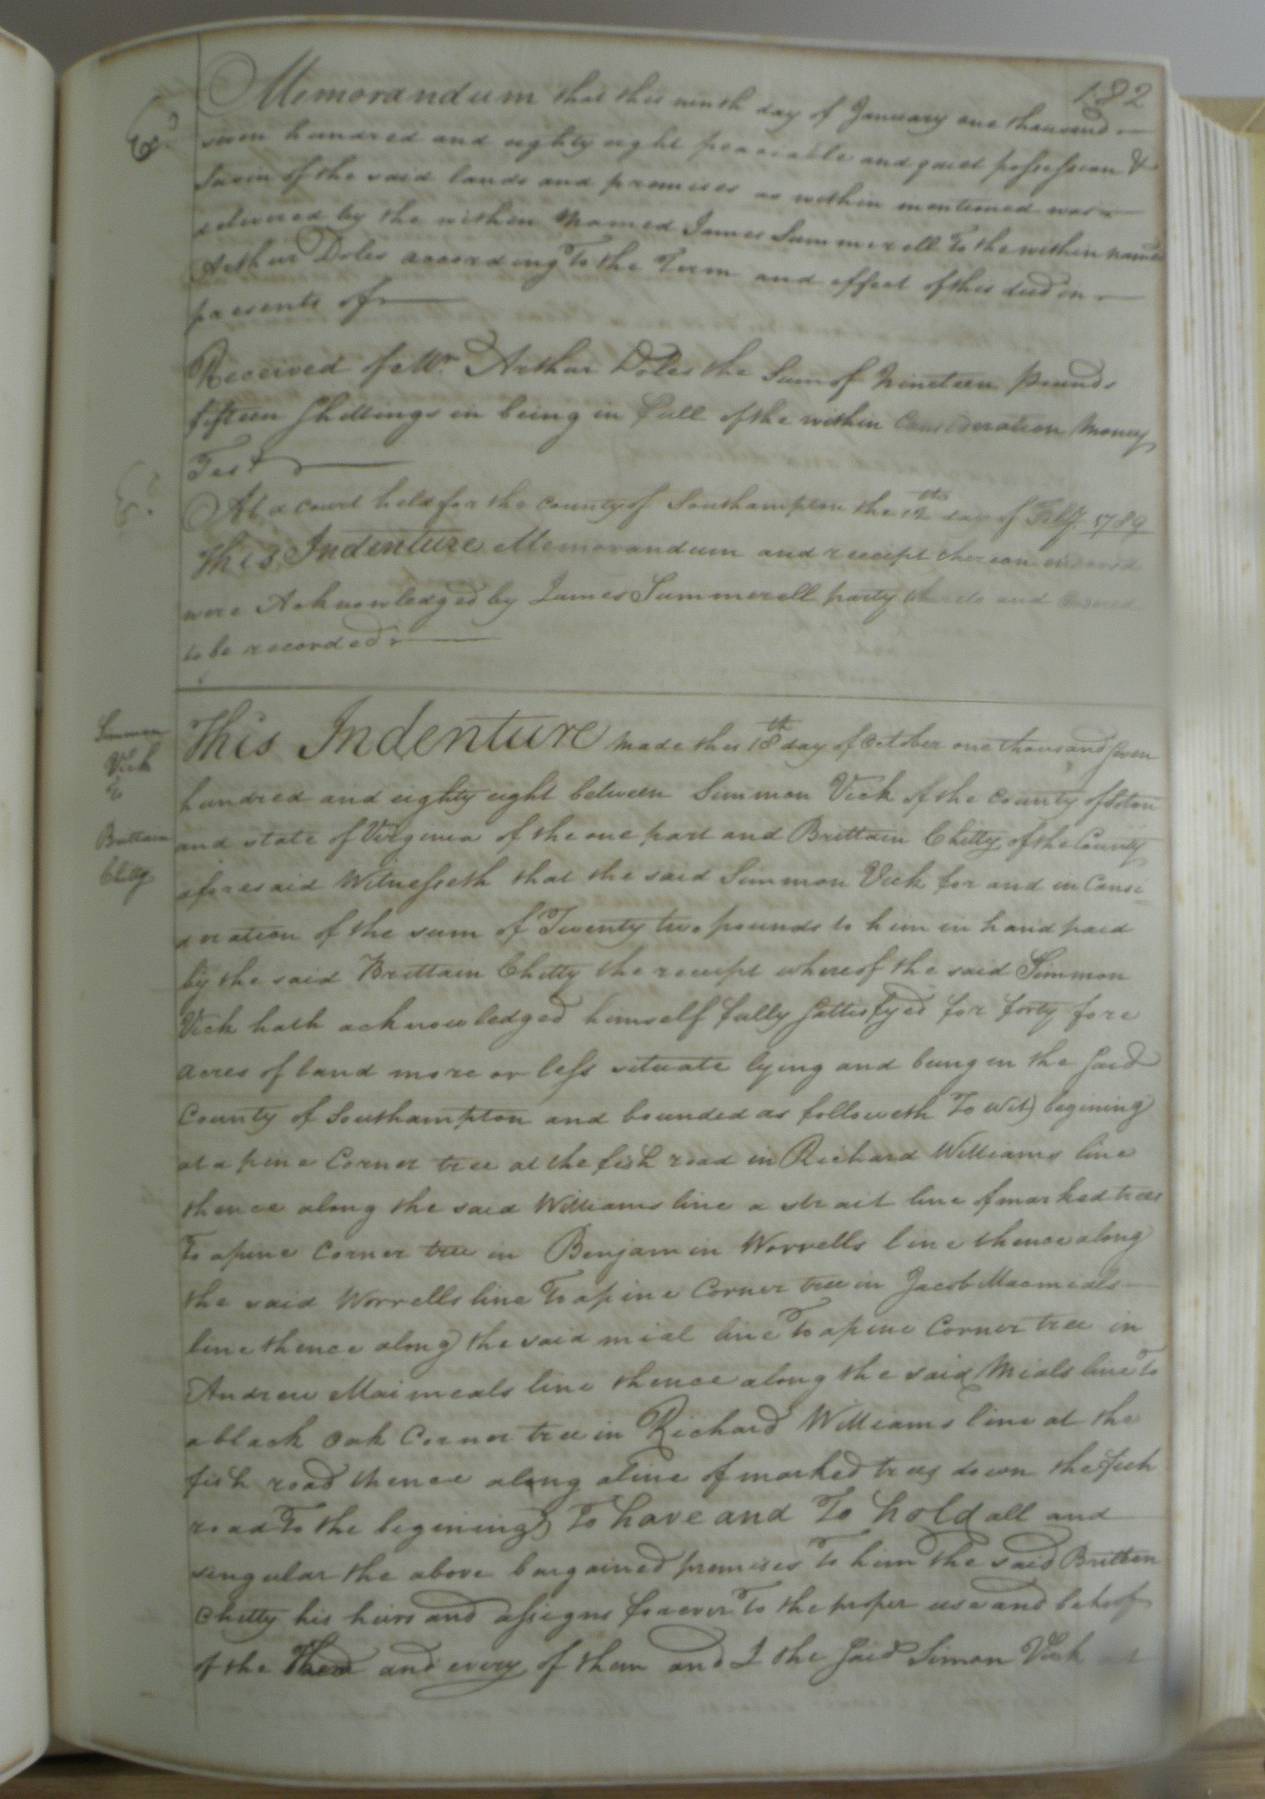 182
Memorandum that this ninth day of January one thousand
Exd
seven hundred and eighty eight peaceable and quiet possession &
Seasin of the said lands and premises as within mentioned was
delivered by the within Named James Summerell To the within named
Arthur Doles according To the Term and effect of this deed in
presents of
Received of Mr. Arthur Doles the Sum of Nineteen pounds
fifteen Shillings in being in full of the within Consideration Money
Test
At a Court held for the County of Southampton the 12th day of Feby. 1789
This Indenture Memorandum and receipt thereon
were Acknowledged by James Summerell party thereto and
to be recorded
Simmon
Vick
To
Brittain
Chitty
This Indenture made this 18th day of October one thousand Seven
hundred and eighty eight between Simmon Vick of the County of Ston
and state of Virginia of the one part and Brittain Chitty of the County
aforesaid Witnesseth that the said Simmon Vick for and in Consi
deration of the sum of Twenty two pounds to him in hand paid
by the said Brittain Chitty the receipt whereof the said Simmon
Vick hath acknowledged himself fully Sattisfyed for forty fore
acres of land more or less situate lying and being in the Said
County of Southampton and bounded as followeth To wit) begining
at a pine Corner tree at the fish road in Richard Williams line
thence along the said Williams line a strait line of marked trees
To a pine Corner tree in Benjamin Worrells line thence along
the said Worrells line To a pine Corner tree in Jacob Macmeals
line thence along the said mial line To a pine Corner tree in
Andrew Macmeals line thence along the said Meals line To
a black Oak Corner tree in Richard Williams line at the
fish road thence along aline of marked trees down the fish
road To the begining) To have and To hold all and
singular the above bargained premises To him the said Britten
Chitty his heirs and assigns forever To the proper use and behoof
of the them and every of them and I the Said Simon Vick